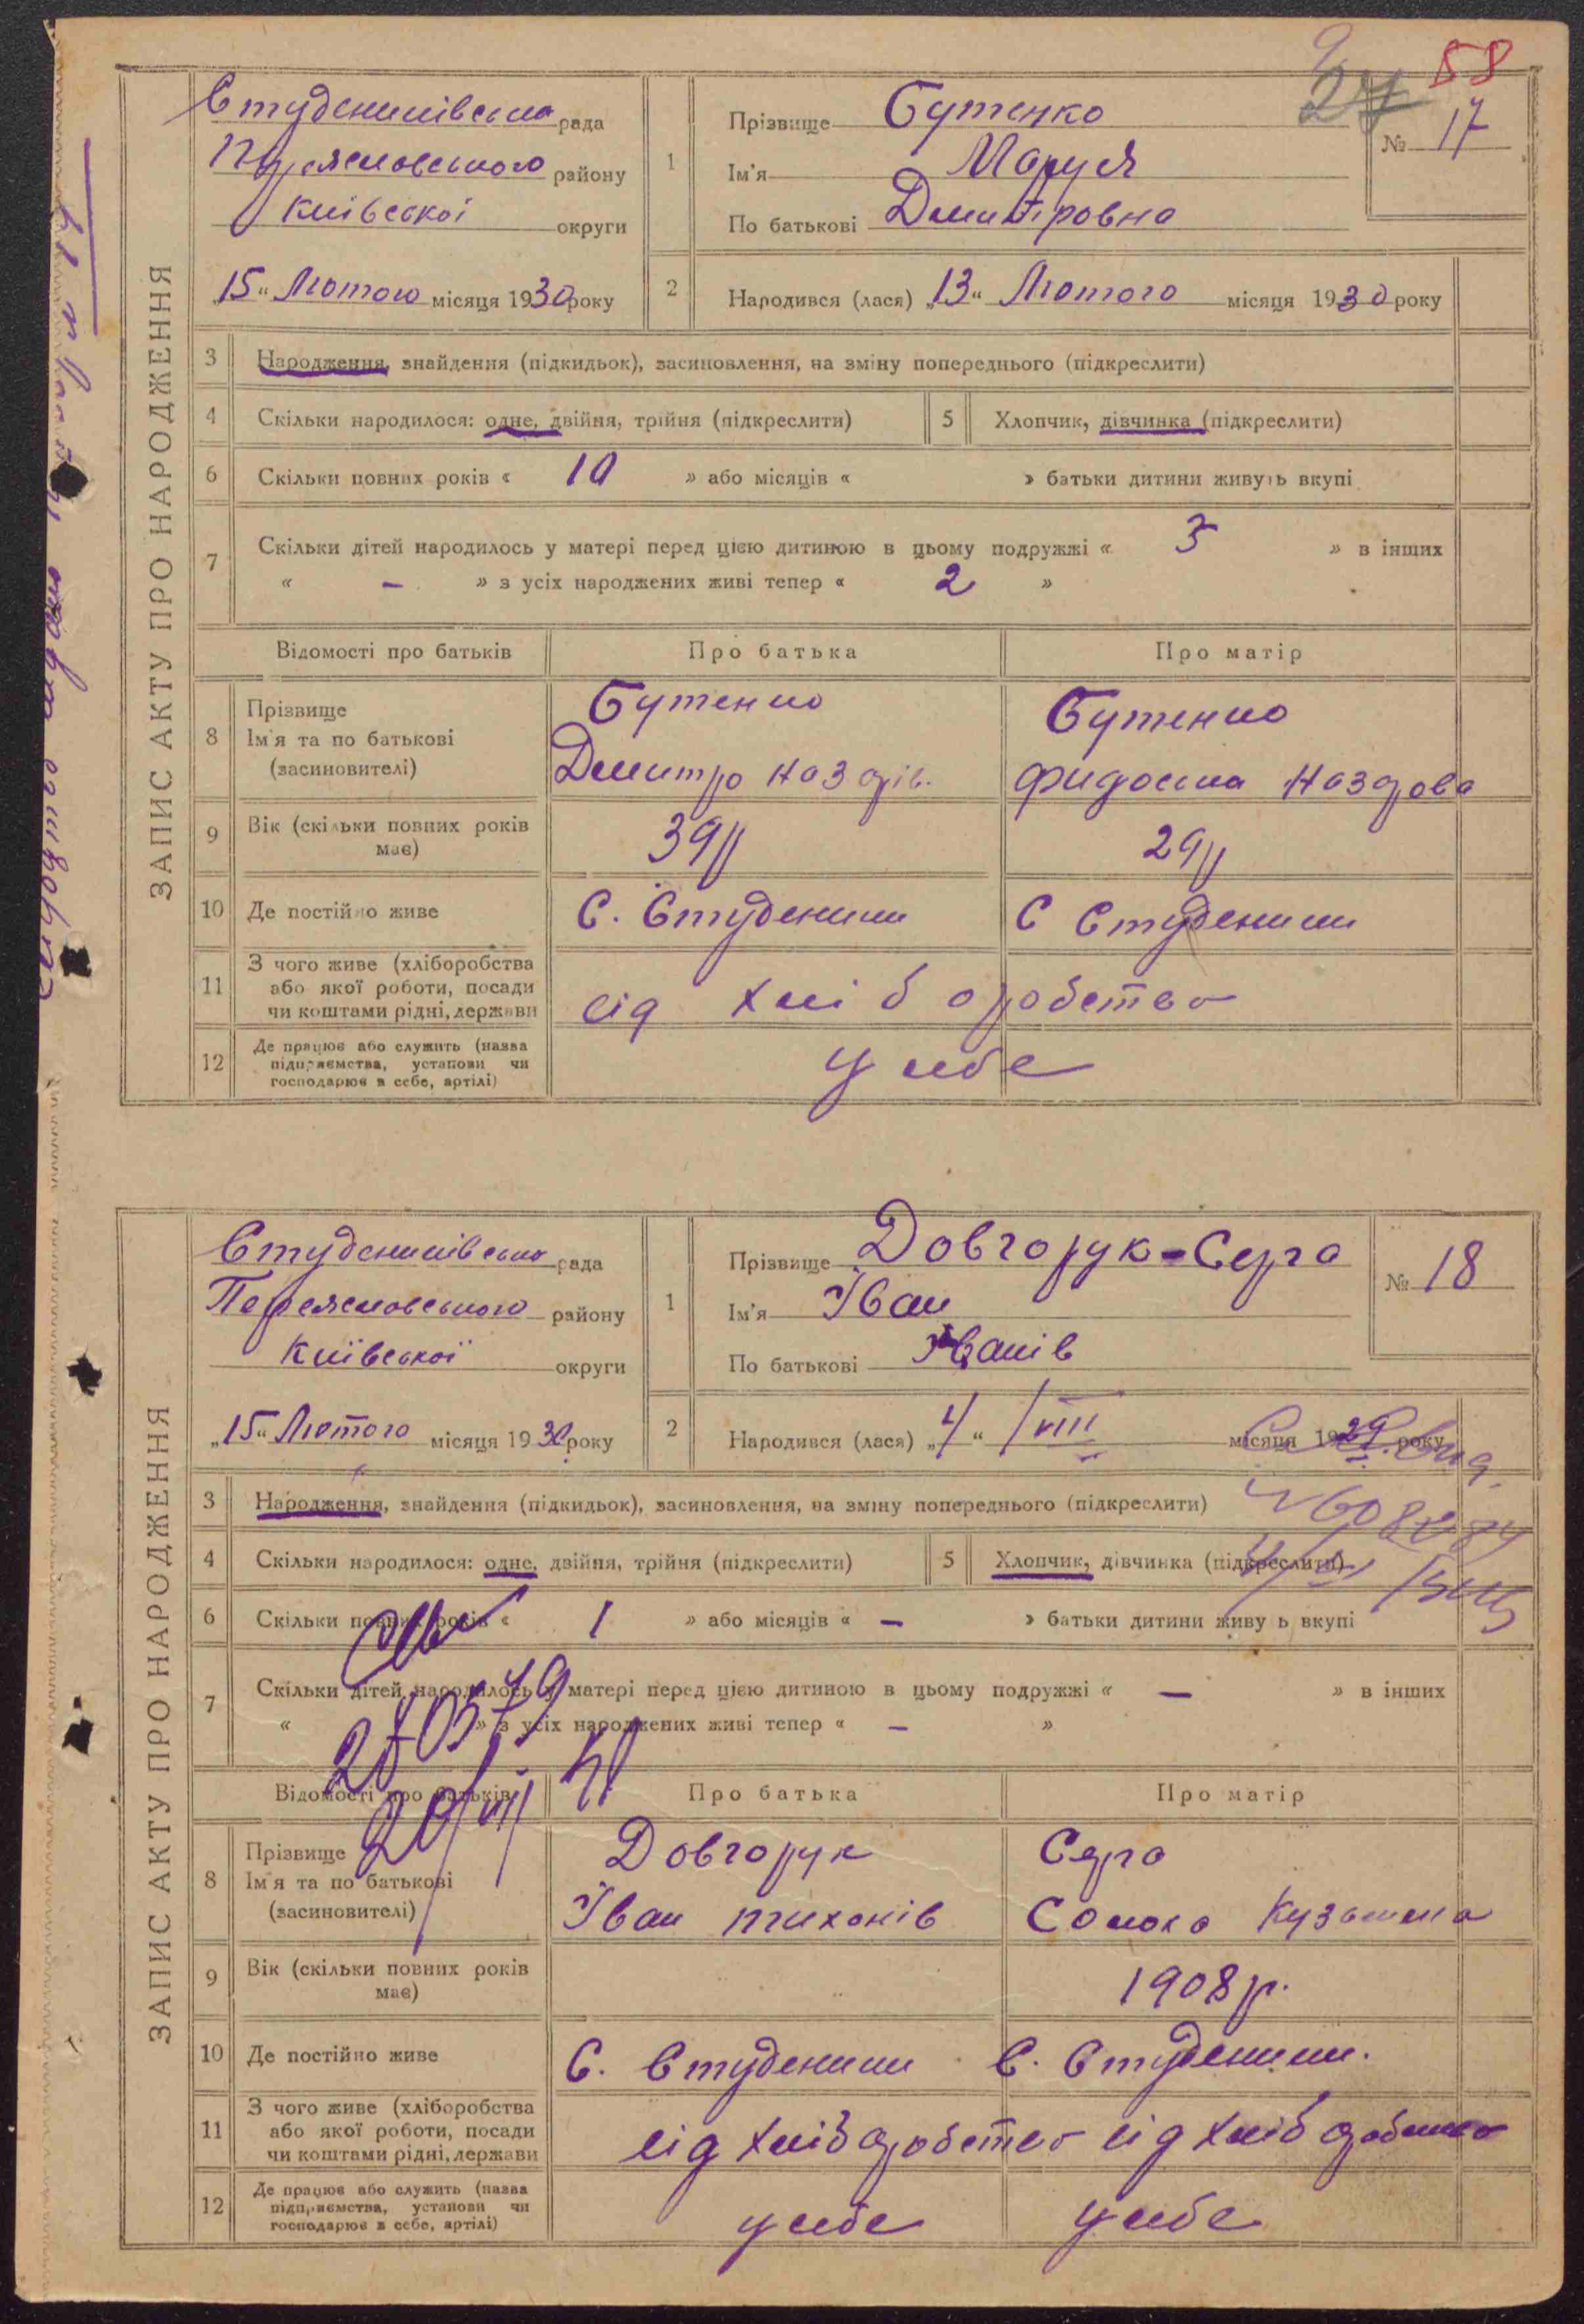 58
ЗАПИС АКТУ ПРО НАРОДЖЕННЯ
Студениківська рада
Переяславського району
Київської округи
„15“ Лютого місяця 1930 року
1
Прізвище Бутенко
Ім'я Маруся
По батькові Дмитровна
№ 17
2
Народився (лася) „13“ Лютого місяця 1930 року
3 Народження, знайдення (підкидьок), засиновлення, на зміну попереднього (підкреслити)
4 Скільки народилося: одне, двійня, трійня (підкреслити) 5 Хлопчик, дівчинка (підкреслити)
6 Скільки повних років « 10 » або місяців « » батьки дитини живуть вкупі
7 Скільки дітей народилось у матері перед цією дитиною в цьому подружжі « 3 » в інших
« – » з усіх народжених живі тепер « 2 »
Відомості про батьків Про батька Про матір
8 Прізвище
Ім'я та по батькові
(засиновителі)
Бутенко
Дмитро
Бутенко
9 Вік (скільки повних років має) 39р 29р
10 Де постійно живе С. Студеники С Студеники
11 З чого живе (хліборобства
або якої роботи, посади
чи коштами рідні, держави
від хліборобства
12 Де працює або служить (назва
підприємства, установи чи
господарює в себе, артілі)
у себе
ЗАПИС АКТУ ПРО НАРОДЖЕННЯ
Студениківська рада
Переяславського району
Київської округи
„15“ Лютого місяця 1930 року
1
Прізвище Довгорук-Серга
Ім'я Іван
По батькові Іванів
№ 18
2
Народився (лася) „4“ / VIII місяця 1929 року
3 Народження, знайдення (підкидьок), засиновлення, на зміну попереднього (підкреслити)
4 Скільки народилося: одне, двійня, трійня (підкреслити) 5 Хлопчик, дівчинка (підкреслити)
6 Скільки повних років « 1 » або місяців « – » батьки дитини живу ь вкупі
7 Скільки дітей народилось у матері перед цією дитиною в цьому подружжі « – » в інших
« » з усіх народжених живі тепер « – »
Відомості про батьків Про батька Про матір
8 Прізвище
Ім'я та по батькові
(засиновителі)
Довгорук
Іван тихонів
Серга
9 Вік (скільки повних років має) 1908р.
10 Де постійно живе С. Студеники С. Студеники.
11 З чого живе (хліборобства
або якої роботи, посади
чи коштами рідні, держави
від хліборобства від хліборобства
12 Де працює або служить (назва
підприємства, установи чи
господарює в себе, артілі)
у себе у себе